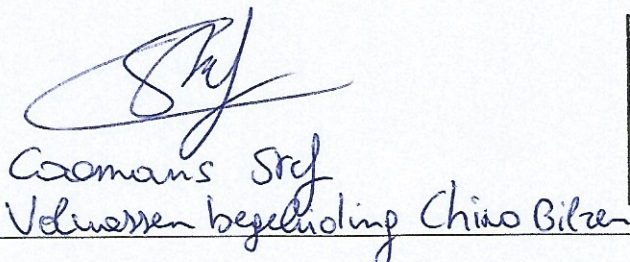 Stef
Coomans Stef
Volwassen begeleiding Chiro Bilzen